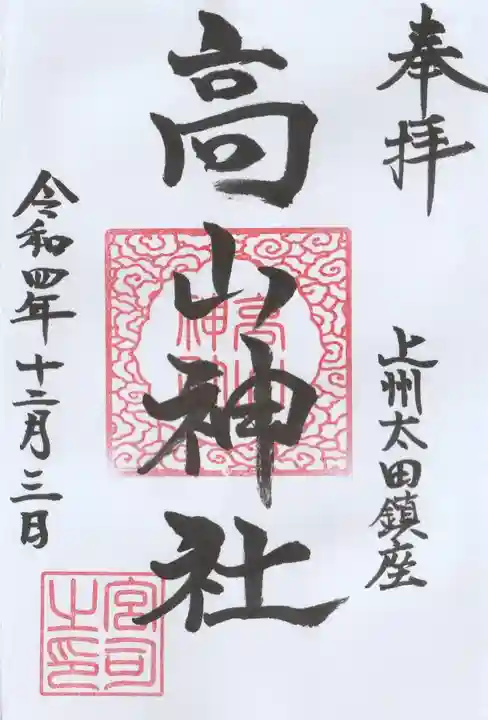 奉拝
上州太田鎮座
高山神社
令和四年十二月三日
宮司之印